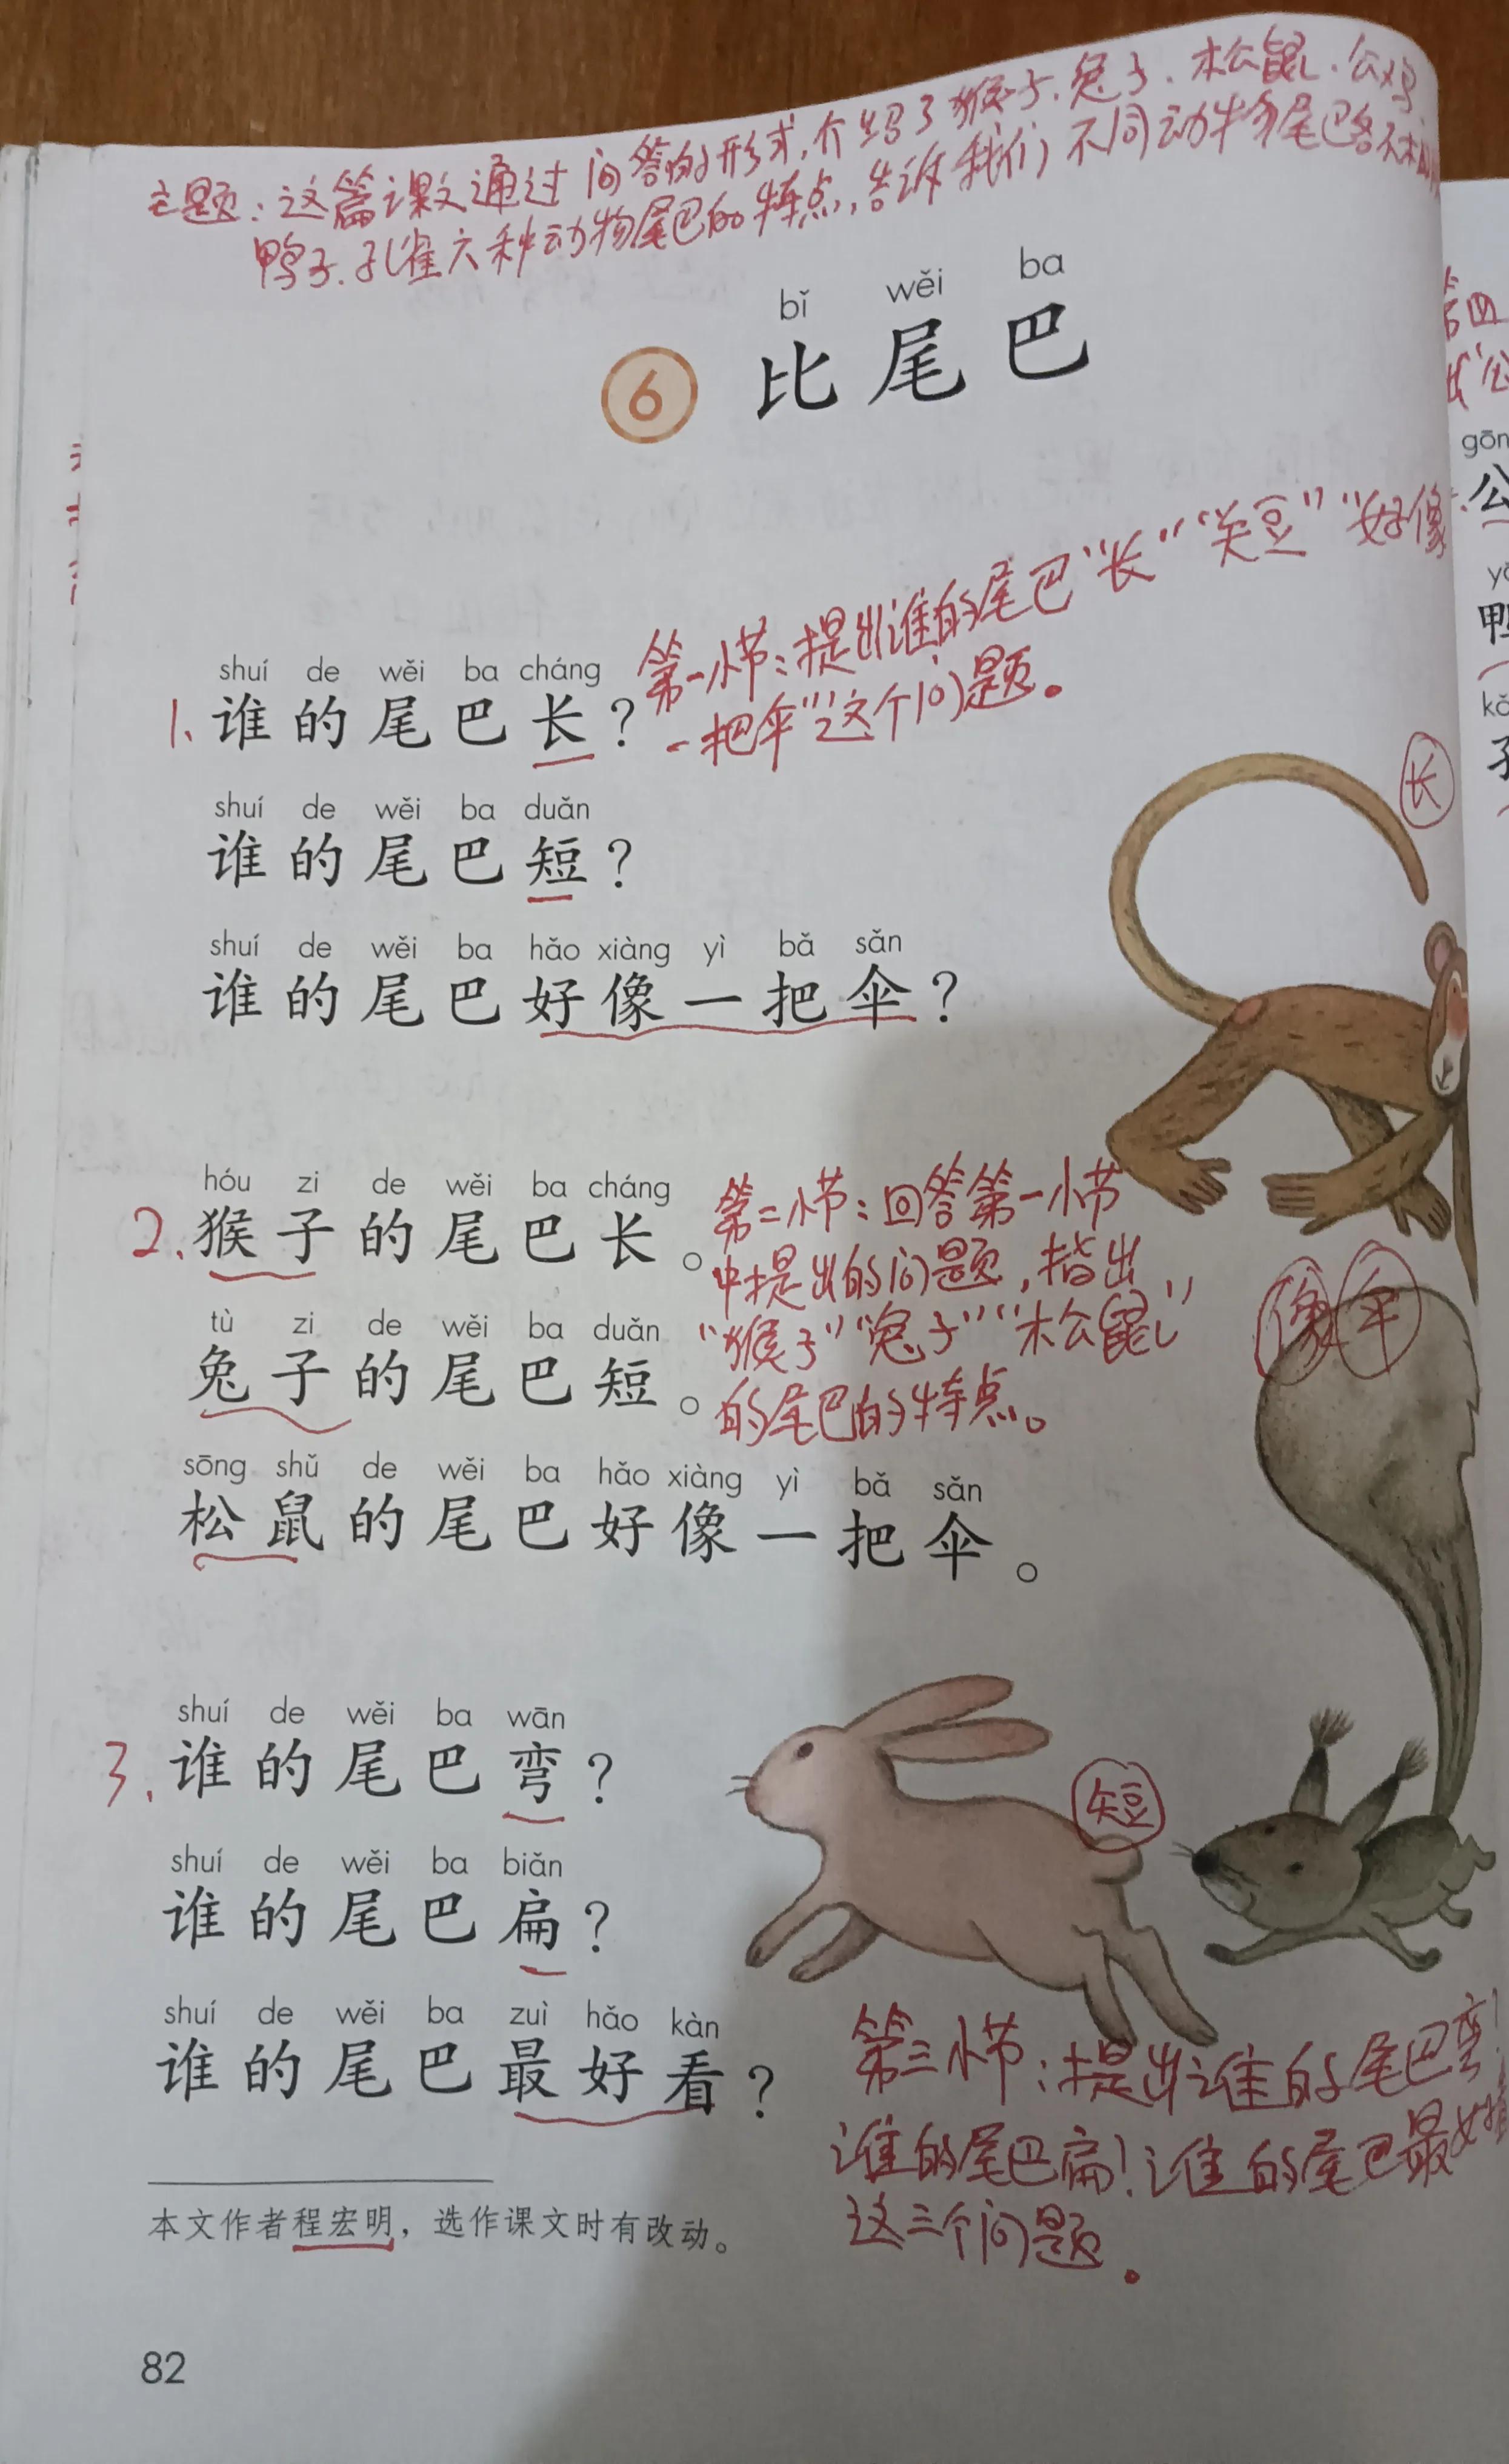 主题：这篇课文通过问答的形式，介绍了猴子、兔子、松鼠、公鸡、
鸭子、孔雀六种动物尾巴的特点，告诉我们不同动物尾巴各不相同
bǐ wěi ba
6 比尾巴
shuí de wěi ba cháng
1、谁的尾巴长？
第一小节：提出谁的尾巴“长”“短”“好像
一把伞”这个问题。
shuí de wěi ba duǎn
谁的尾巴短？
shuí de wěi ba hǎo xiàng yì bǎ sǎn
谁的尾巴好像一把伞？
长
hóu zi de wěi ba cháng
2、猴子的尾巴长。
第二小节：回答第一小节
中提出的问题，指出
“猴子”“兔子”“松鼠”
的尾巴的特点。
tù zi de wěi ba duǎn
兔子的尾巴短。
sōng shǔ de wěi ba hǎo xiàng yì bǎ sǎn
松鼠的尾巴好像一把伞。
像伞
shuí de wěi ba wān
3、谁的尾巴弯？
shuí de wěi ba biǎn
谁的尾巴扁？
shuí de wěi ba zuì hǎo kàn
谁的尾巴最好看？
短
第三小节：提出谁的尾巴弯！
谁的尾巴扁！谁的尾巴最好
这三个问题。
本文作者程宏明，选作课文时有改动。
82
gōn
公
鸭